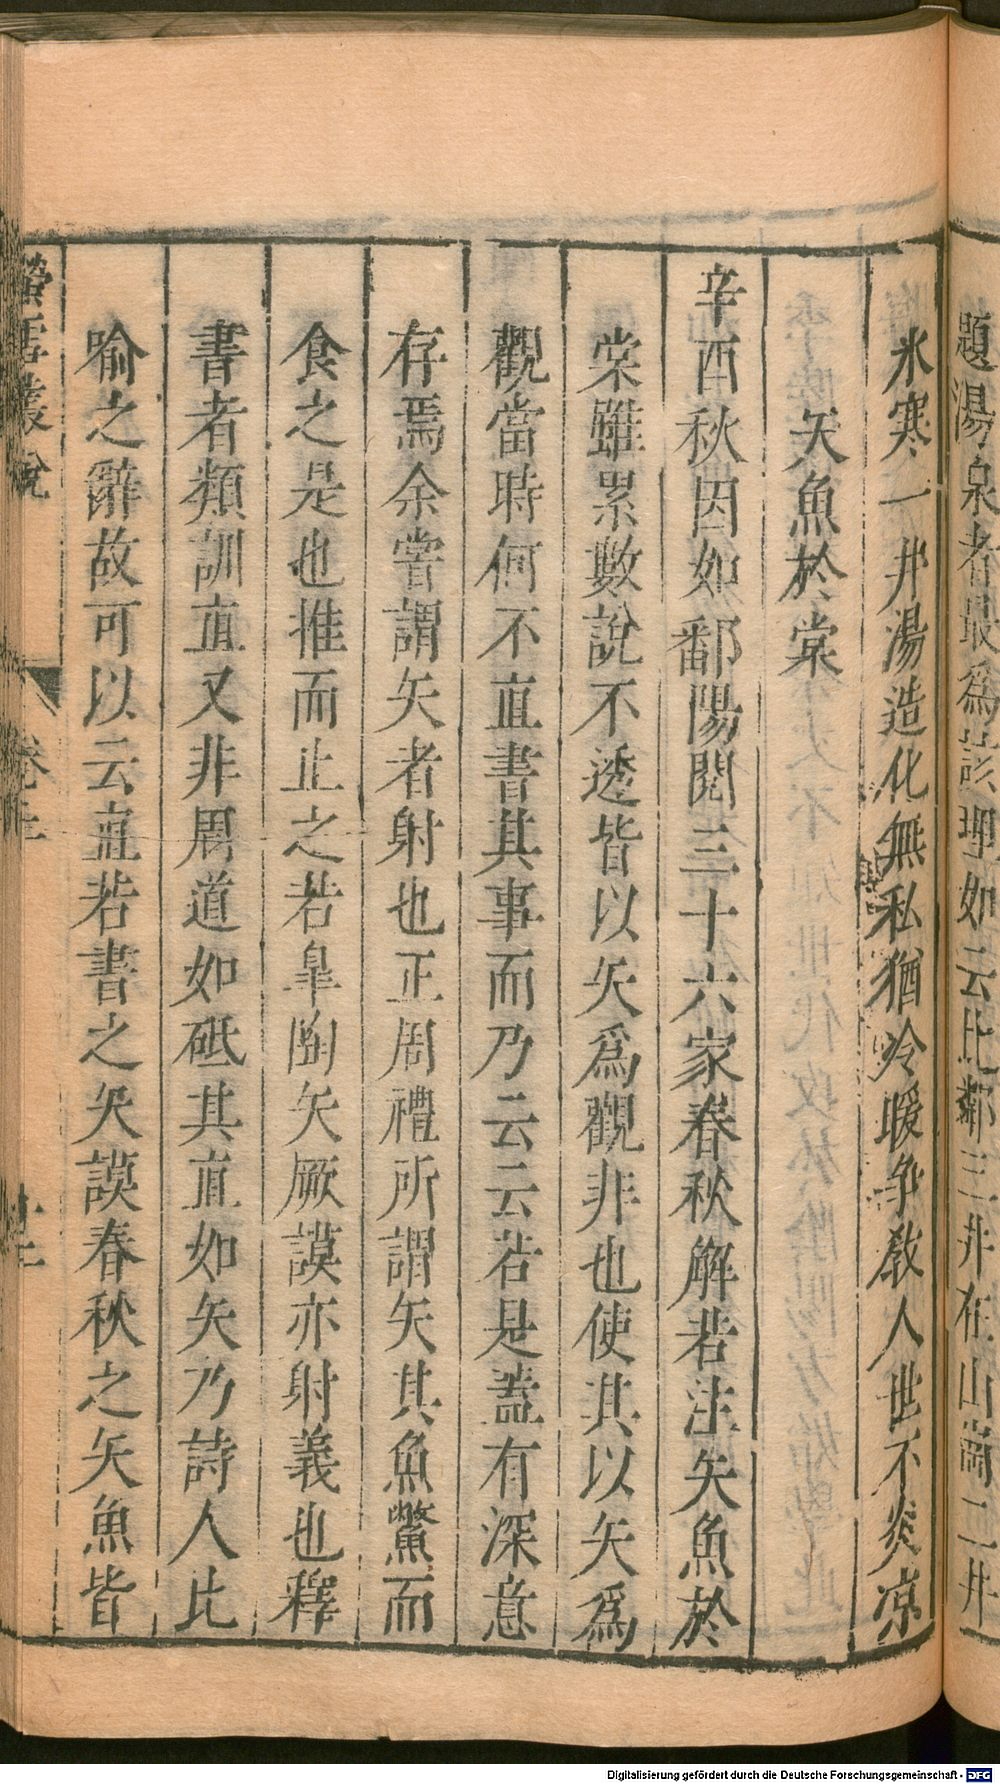 題湯泉者最爲該理如云比鄰三井在山岡二井
氷寒一井湯造化無私猶冷暖爭教人世不炎凉
矢魚於棠
辛酉秋因如鄱陽閱三十六家春秋解若注矢魚於
棠雖累數說不透皆以矢爲觀非也使其以矢爲
觀當時何不直書其事而乃云云若是蓋有深意
存焉余嘗謂矢者射也正周禮所謂矢其魚鱉而
食之是也推而止之若臯陶矢厥謨亦射義也釋
書者類訓直又非周道如砥其直如矢乃詩人比
喻之辭故可以云直若書之矢謨春秋之矢魚皆
螢雪叢說
卷上
Digitalisierung gefördert durch die Deutsche Forschungsgemeinschaft - DFG